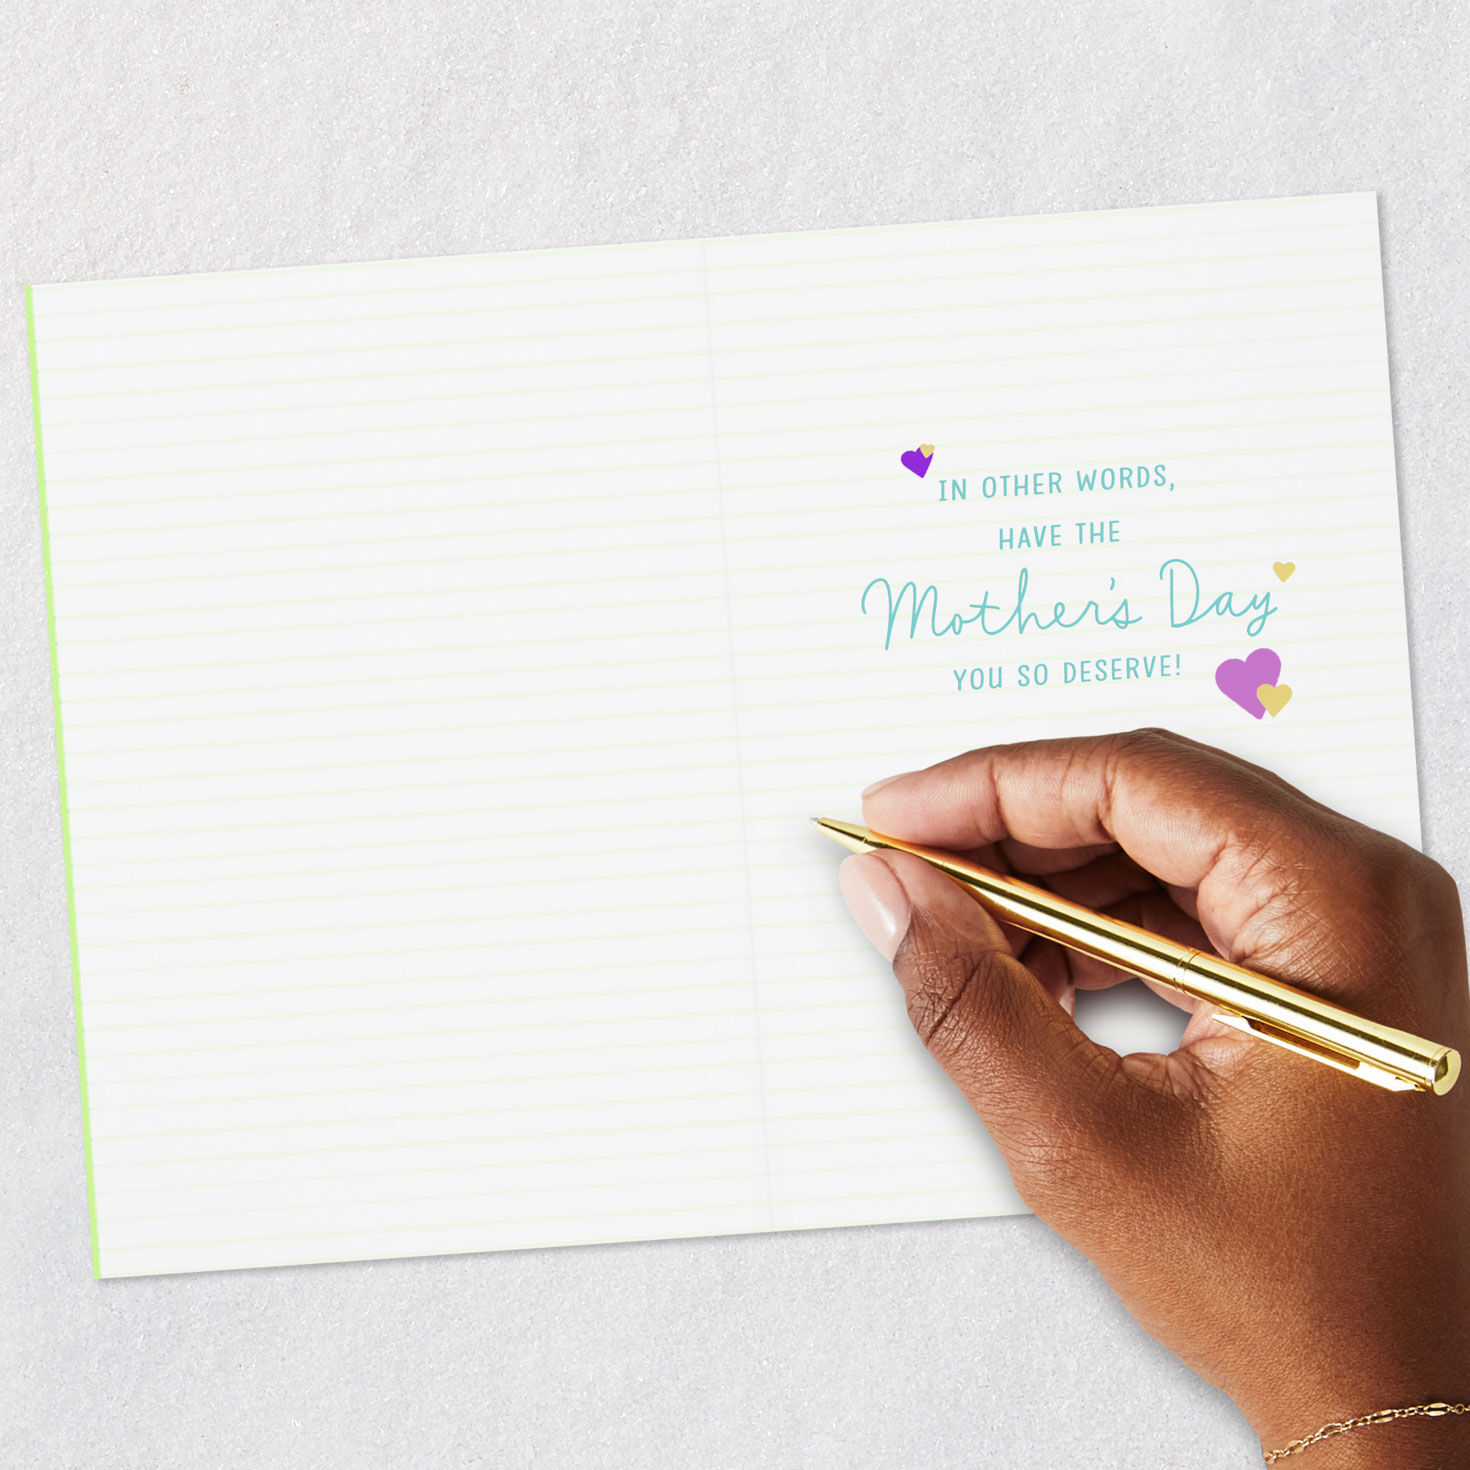 IN OTHER WORDS,
HAVE THE
Mother's Day
YOU SO DESERVE!